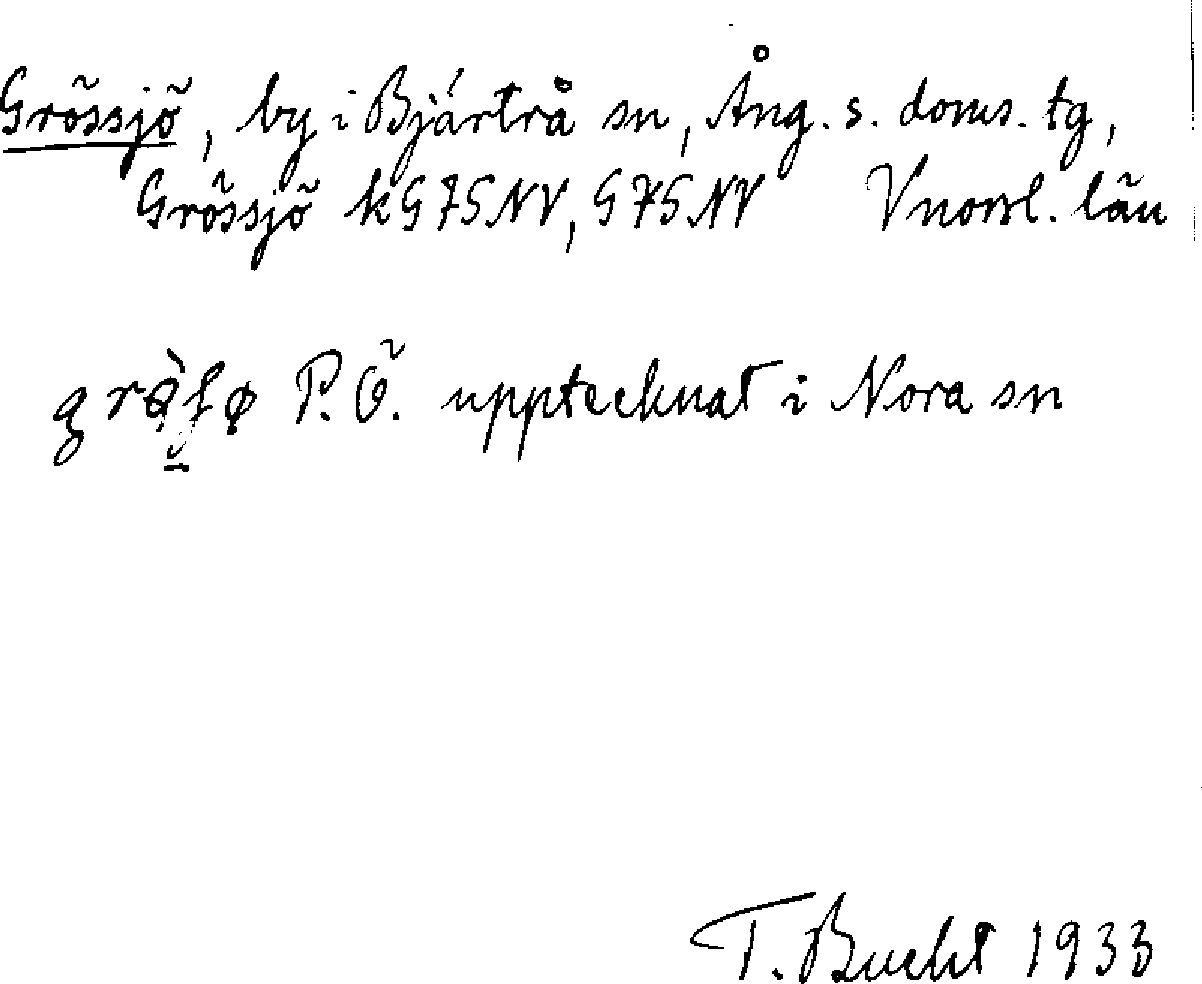 Grössjö, by i Bjärtrå sn, Ång. s. doms. tg,
Grössjö kG75NV, G75NV Vnorrl. län
P. Ö. upptecknat i Nora sn
T. Bucht 1933